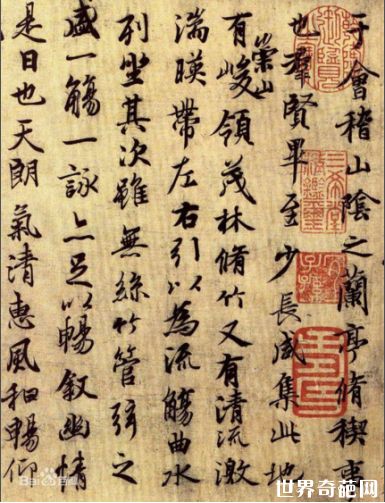 于會稽山陰之蘭亭脩稧事
也羣賢畢至少長咸集此地
有崇山峻領茂林脩竹又有清流激
湍暎帶左右引以為流觴曲水
列坐其次雖無絲竹管弦之
盛一觴一詠亦足以暢敘幽情
是日也天朗氣清惠風和暢仰
三希堂精鑒璽
宜子孫
Bai百科
世界奇葩网